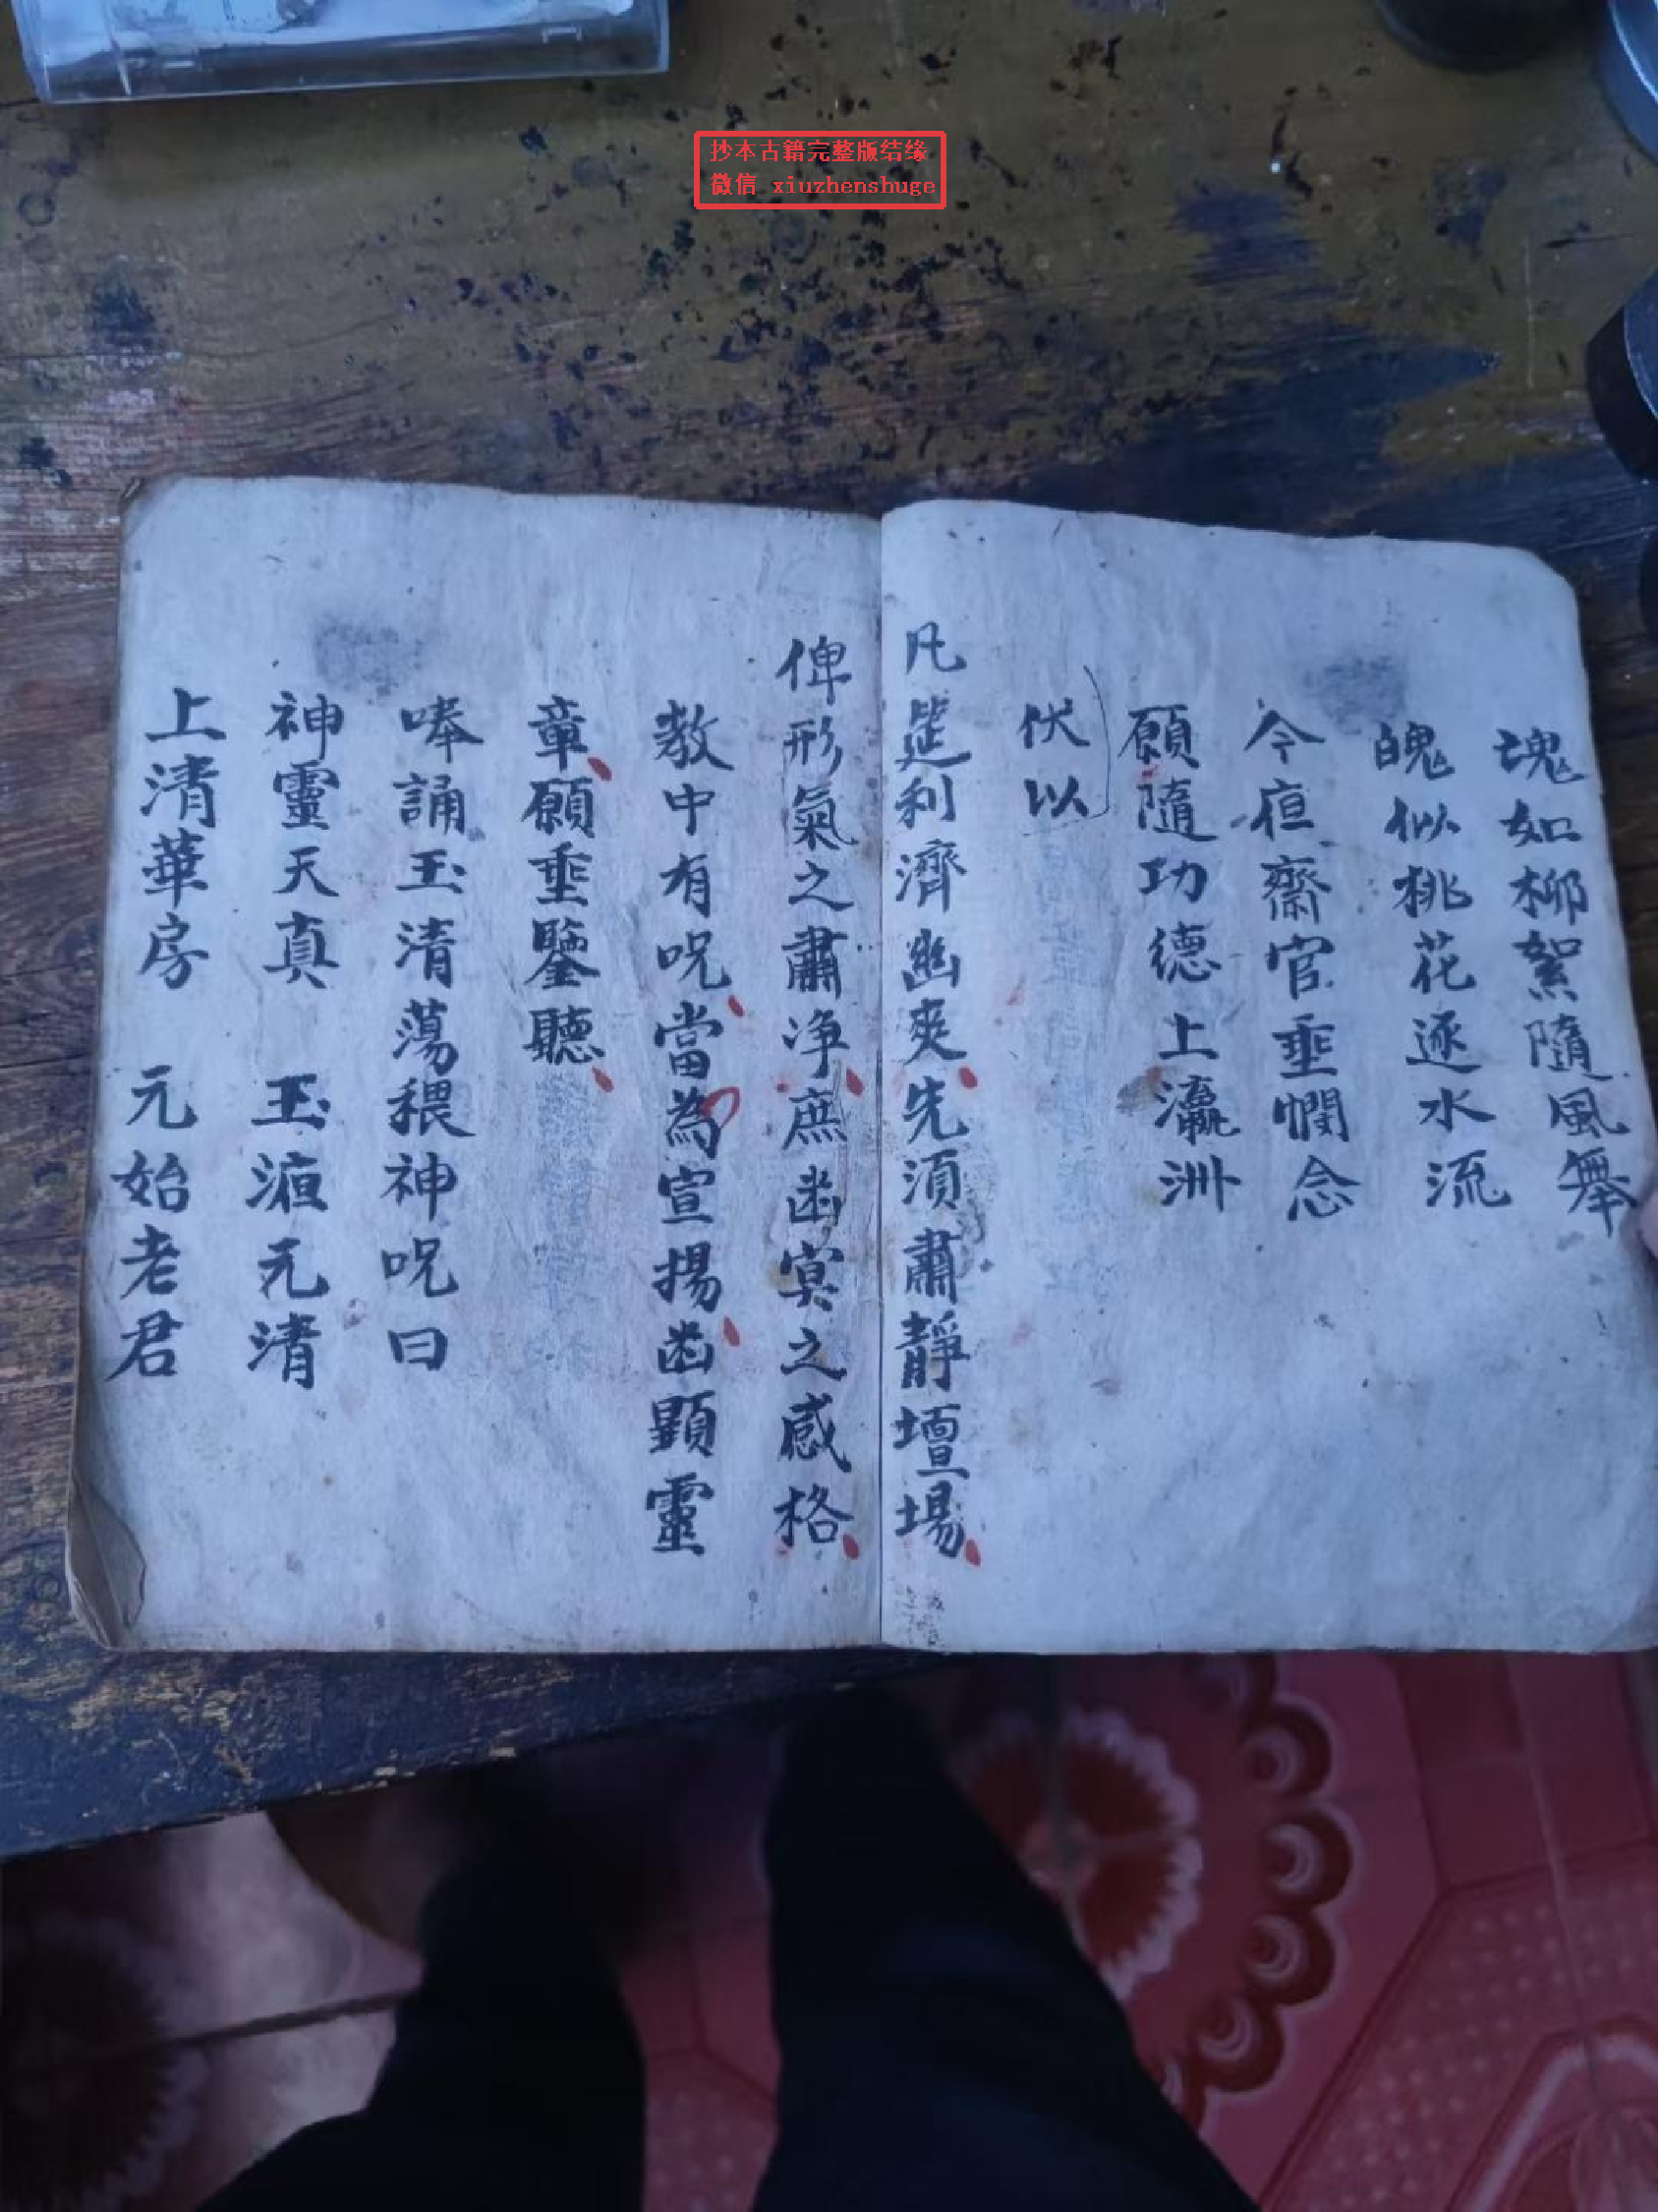 抄本古籍完整版结缘
微信 xiuzhenshuge
塊如柳絮隨風舞
魄似桃花逐水流
今宵齋官垂憫念
願隨功德上瀛洲
伏以
凡筵利濟幽爽先須肅靜壇場
俾形氣之肅净庶幽冥之感格
教中有呪當為宣揚幽顯靈
章願垂鑒聽
奉誦玉清蕩穢神呪曰
神靈天真 玉滬元清
上清華房 元始老君